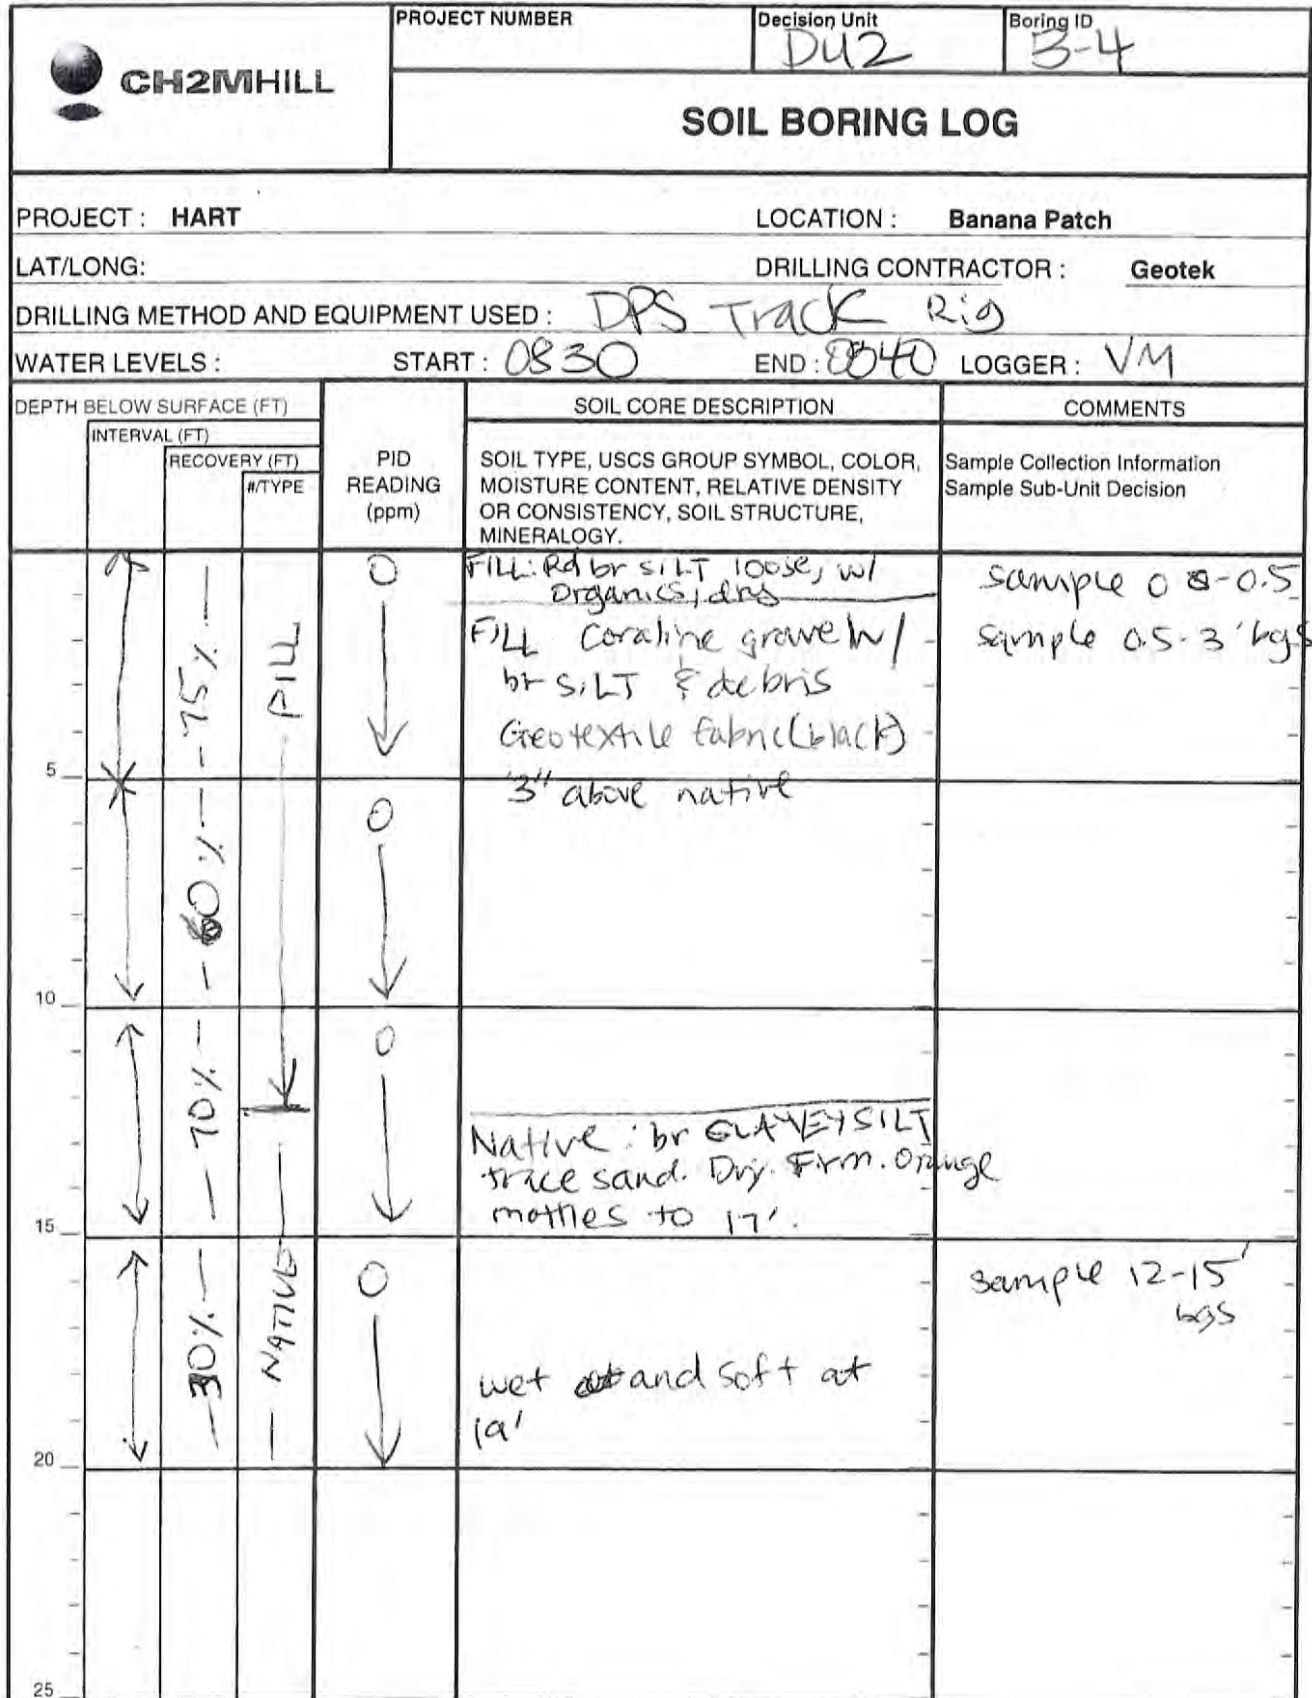 CH2MHILL
PROJECT NUMBER
Decision Unit
DU2
Boring ID
B-4
SOIL BORING LOG
PROJECT : HART
LOCATION : Banana Patch
LAT/LONG:
DRILLING CONTRACTOR : Geotek
DRILLING METHOD AND EQUIPMENT USED : DPS Track Rig
WATER LEVELS :
START : 0830
END : 0840
LOGGER : VM
DEPTH BELOW SURFACE (FT)
INTERVAL (FT)
RECOVERY (FT)
#/TYPE
PID
READING
(ppm)
SOIL CORE DESCRIPTION
SOIL TYPE, USCS GROUP SYMBOL, COLOR,
MOISTURE CONTENT, RELATIVE DENSITY
OR CONSISTENCY, SOIL STRUCTURE,
MINERALOGY.
COMMENTS
Sample Collection Information
Sample Sub-Unit Decision
75%
FILL
0
FILL: Rd br SILT loose, w/
Organics, dry
sample 0 - 0.5
FILL Coraline gravel w/
br SILT & debris
Geotextile fabric (black)
3" above native
sample 0.5-3' bgs
5
60%
0
10
70%
0
Native : br CLAYEY SILT
trace sand. Dry. Firm. Orange
mottles to 17'.
15
30%
NATIVE
0
sample 12-15'
bgs
wet and soft at
19'
20
25